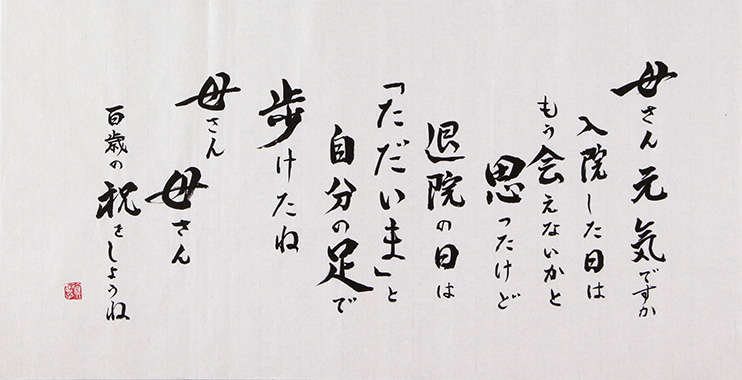 母さん元気ですか
入院した日は
もう会えないかと
思ったけど
退院の日は
「ただいま」と
自分の足で
歩けたね
母さん
母さん
百歳の祝をしようね